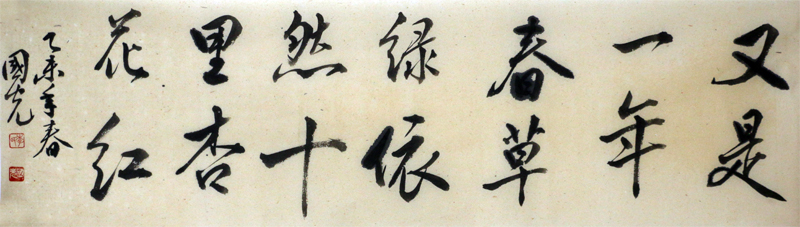 又是
一年
春草
绿依
然十
里杏
花红
乙未年春
國光